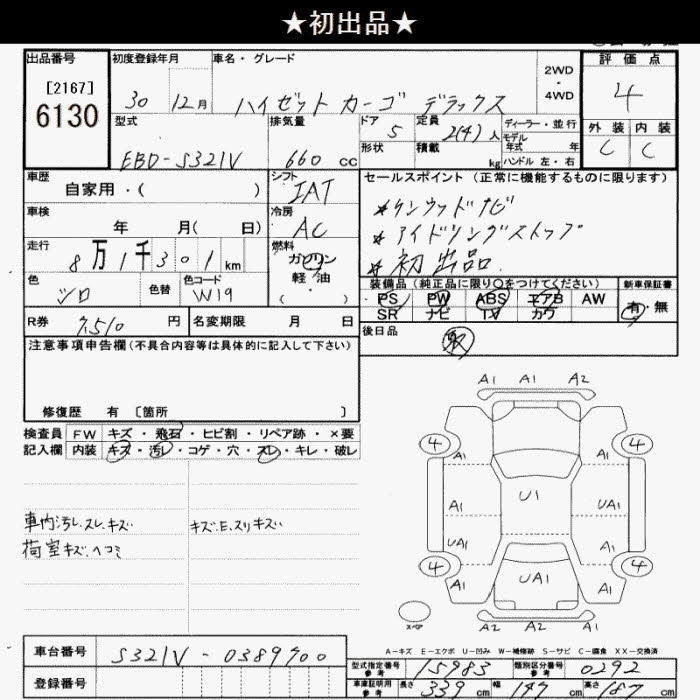 ★初出品★
出品番号 初度登録年月 車名・グレード 2WD・4WD 評価点
[2167]
6130
30 12月 ハイゼットカーゴ デラックス 4
型式 排気量 ドア 定員 ディーラー・並行 外装 内装
EBD-S321V 660 cc 5 2(4)人 モデル年式 年 C C
形状 積載 kg ハンドル 左・右
車歴 シフト セールスポイント (正常に機能するものに限ります)
自家用・( ) IAT
*ケンウッドナビ
車検 冷房
年 月( 日) AC
*アイドリングストップ
走行 燃料
8万1千301km ガソリン
*初出品
軽油
・( )
色 色替 色コード
シロ W19
装備品 (純正品に限り○をつけてください) 新車保証書
PS PW ABS エアB AW 有・無
SR ナビ TV カワ
R券 7,510 円 名変期限 月 日
後日品 取
注意事項申告欄(不具合内容等は具体的に記入して下さい)
修復歴 有 [箇所 ]
検査員 FW キズ・飛石・ヒビ割・リペア跡・×要
記入欄 内装 キズ・汚レ・コゲ・穴・スレ・キレ・破レ
車内汚レ.スレ.キズ キズ.E.スリキズ
荷室キズ.ヘコミ
A1 A1 A2
4 4
A1 A1
A1 U1 UA1
UA1 A1
4 4
A1 UA1 A1
スペア
A2 A2 A2
A-キズ E-エクボ U-凹み W-補修跡 S-サビ C-腐食 XX-交換済
車台番号 S321V-0389700
型式指定番号 参考 15983 類別区分番号 参考 0292
登録番号
車庫証明用 参考 長さ 339 cm 幅 147 cm 高さ 187 cm